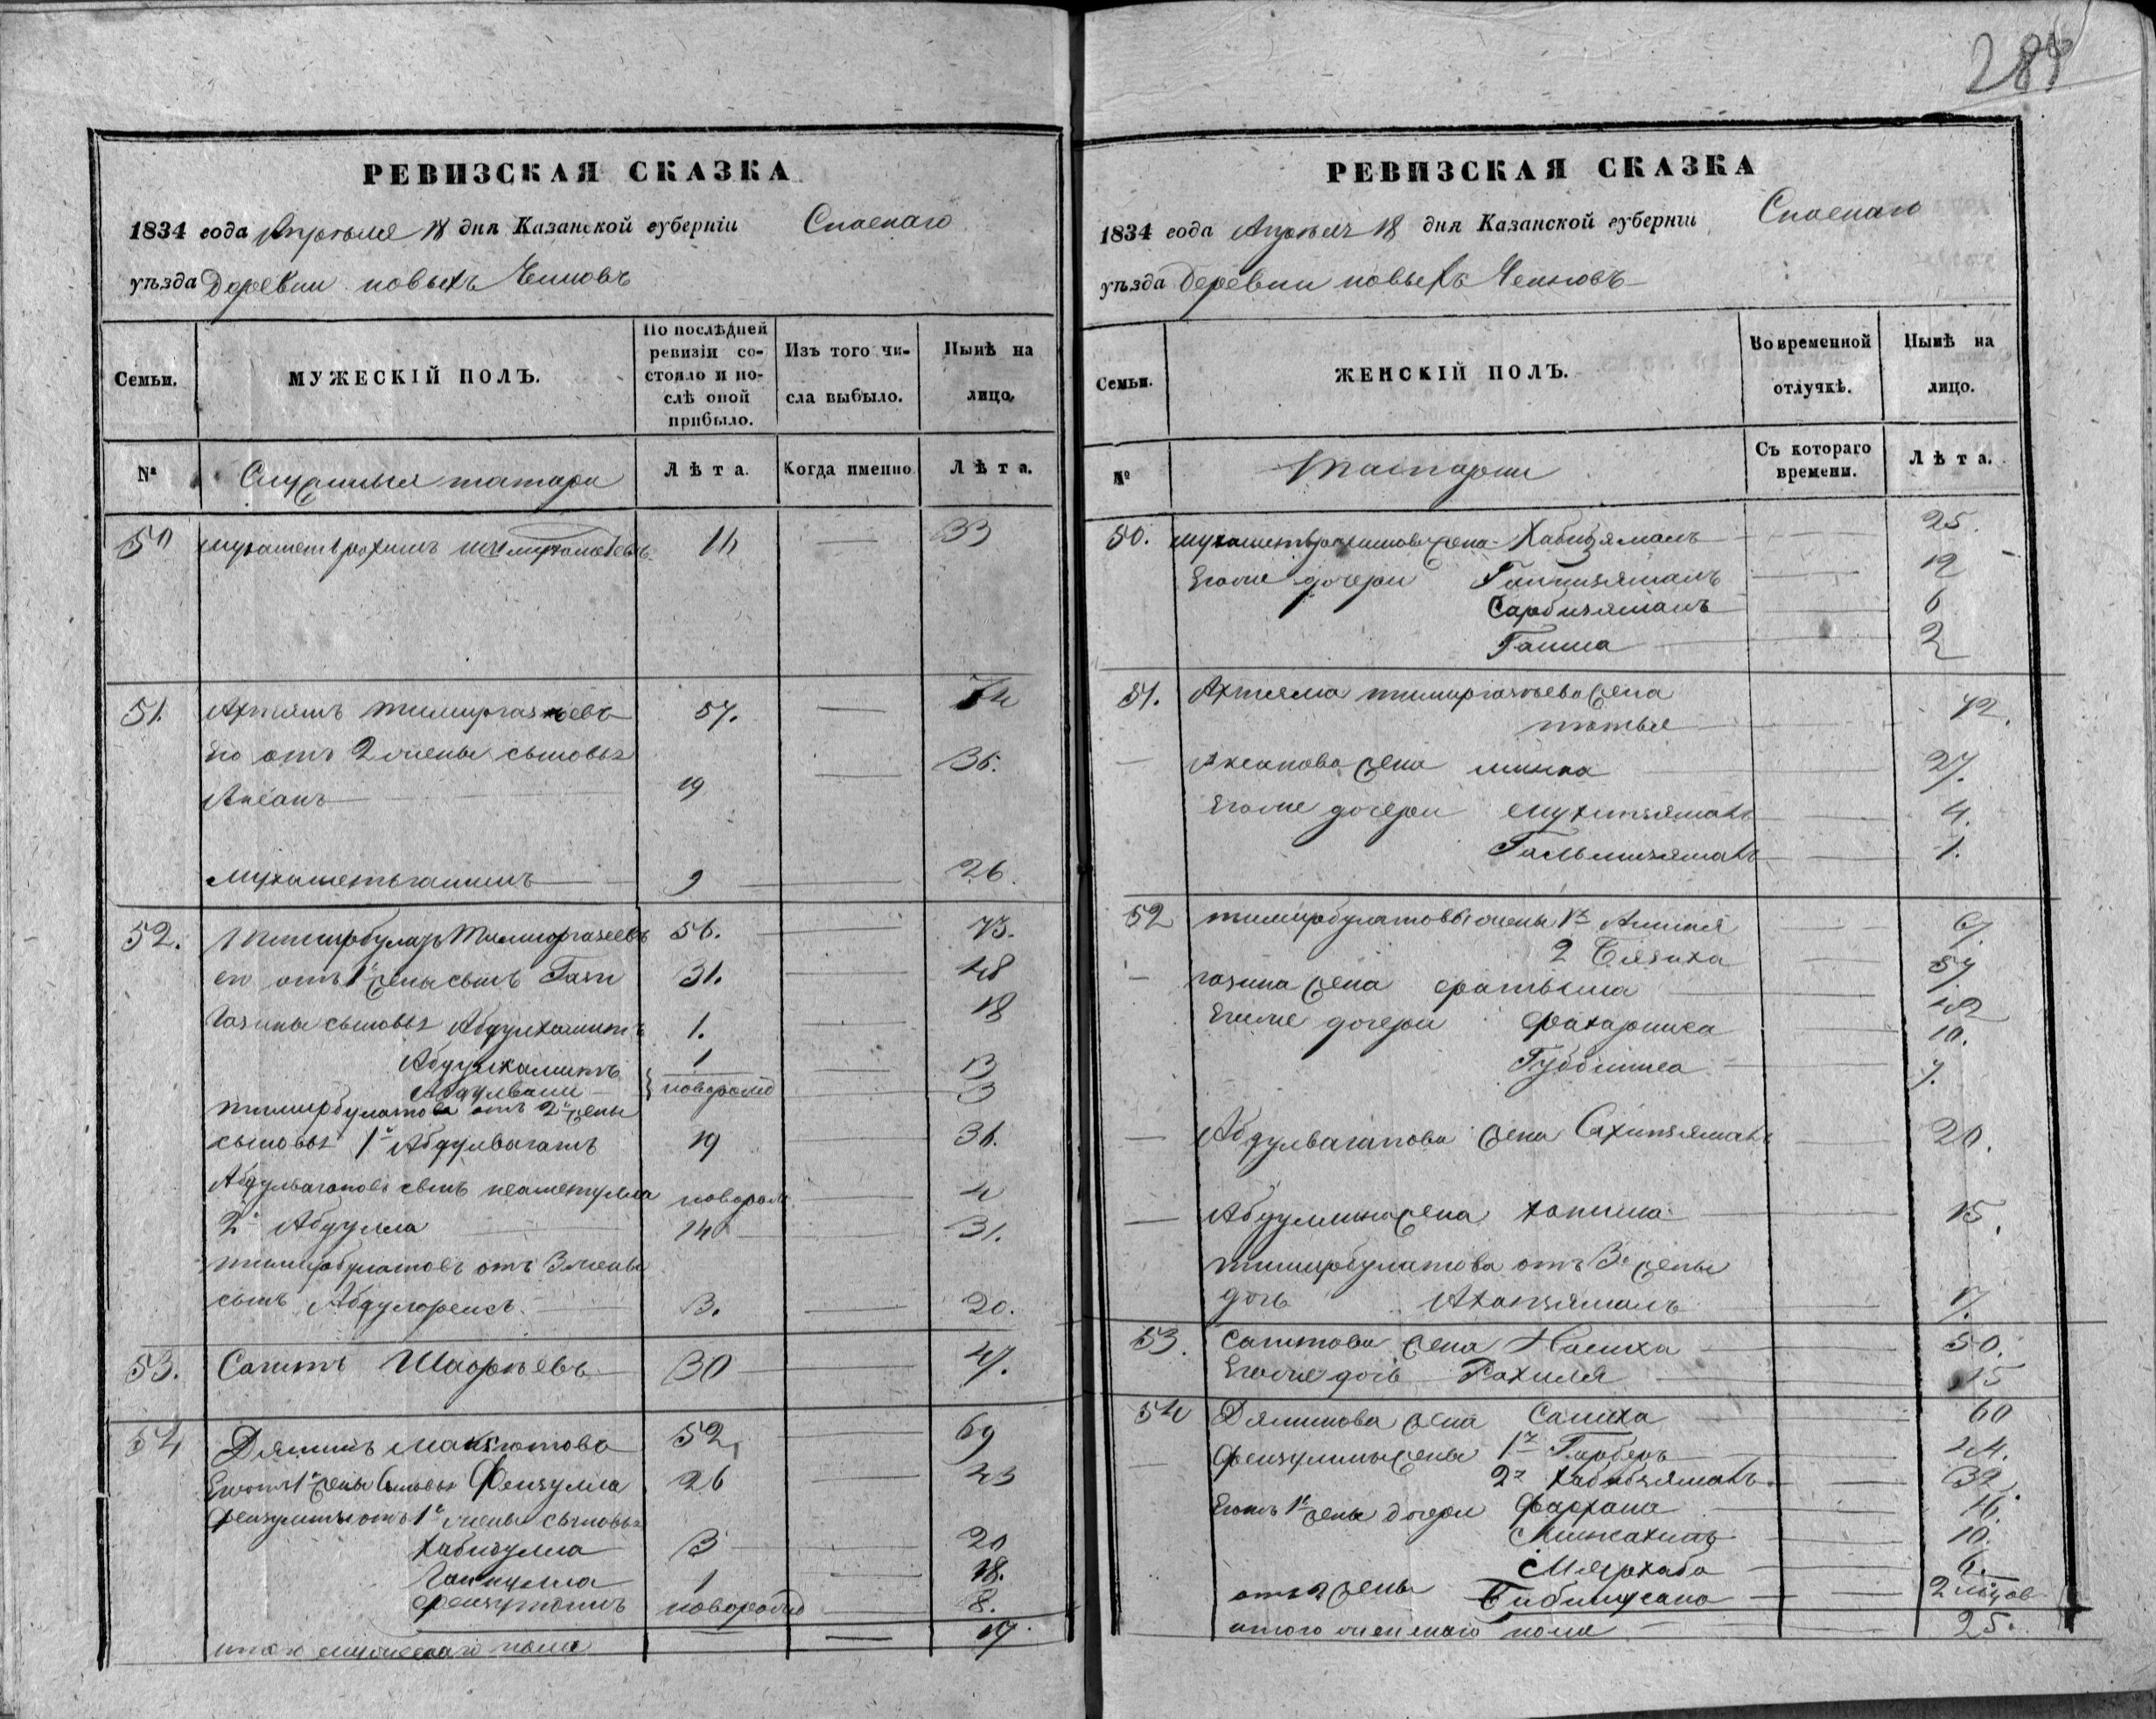 284
РЕВИЗСКАЯ СКАЗКА
1834 года Апреля 18 дня Казанской губернiи Спаскаго
уѣзда Деревни новыхъ Челновъ
Семьи.
МУЖЕСКIЙ ПОЛЪ.
По послѣдней ревизiи состояло и послѣ оной прибыло.
Изъ того числа выбыло.
Нынѣ на лицо.
№
Служилыя татара
Лѣта.
Когда именно
Лѣта.
50 Мухаметърахимъ 16 — 33
51. Ахтямъ Тимиргазѣевъ 57. — 74
Его отъ 2 жены сыновья
Аксанъ 19 — 36.
Мухаметьгалимъ 9 — 26.
52. Тимирбулатъ Тимиргазеевъ 56. — 73.
его отъ 1й жены сынъ Гази 31. — 48
Газины сыновья Абдулхалитъ 1. — 18
Абдулхалитъ 1 — 13
Абдулвали новорожд — 3
Тимирбулатова отъ 2й жены
сыновья 1й Абдулвагапъ 19 — 36.
Абдулвагаповъ сынъ неаметулла новорож — 4
2й Абдулла 14 — 31.
Тимирбулатовъ отъ 3 жены
сынъ Абдулфеисъ 3. — 20.
53. Сагитъ Шафѣевъ 30 — 47.
54 Дялишъ Максютовъ 52, — 69
Его отъ 1й жены сыновья Феизулла 26 — 43
Феизуллины отъ 1й жены сыновья
Хабибулла 3 — 20
1 — 18.
новорожд — 8.
итого мужескаго пола — — 19
РЕВИЗСКАЯ СКАЗКА
1834 года Апреля 18 дня Казанской губернiи Спаскаго
уѣзда Деревни новыхъ Челновъ
Семьи.
ЖЕНСКIЙ ПОЛЪ.
Во временной отлучкѣ.
Нынѣ на лицо.
№
Татарки
Съ котораго времени.
Лѣта.
50. Мухаметьрахимова жена Хабизямалъ — 25.
Егоже дочери — 12
Сарбизямалъ — 6
Галима — 2
51. Ахтяма Тимиргазѣева жена
— 42.
— Аксанова жена Минка — 27.
Егоже дочери Мухипзямалъ — 4.
Гальмизямалъ — 1.
52 Тимирбулатовы жены 1я — 67.
2 Бизиха — 57
— Газина жена Фатьма — 42
Егоже дочери Фахарниса — 10.
Губбиниса — 7.
— Абдулвагапова жена Сахипзямалъ — 20.
— Абдуллина жена — 15.
Тимирбулатова отъ 3й жены
дочь — 17.
53. Сагитова жена Насиха — 50.
Егоже дочь Рахиля — 15
54 жена Салиха — 60
— Феизуллины жены 1я — 44.
2я Хабибзямалъ — 32.
Его отъ 1й жены дочери Фархана — 16.
— 10.
Мярхаба — 6.
отъ 2 жены — 2 мѣсяцов
итого женскаго пола — 25.